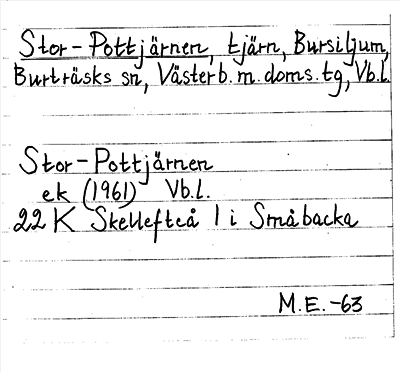 Stor-Pottjärnen, tjärn, Bursiljum,
Burträsks sn, Västerb. m. doms. tg, Vb. l.
Stor-Pottjärnen
ek (1961) Vb. l.
22 K Skellefteå 1 i Småbacka
M.E. -63